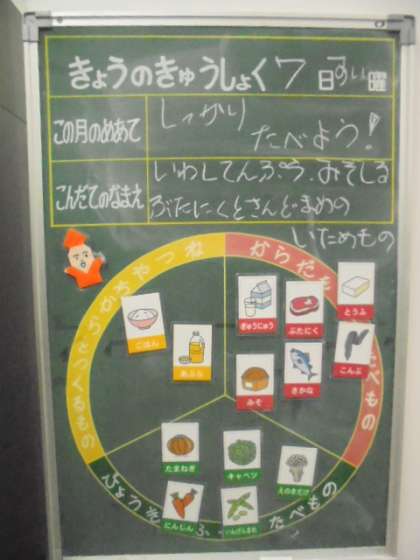 きょうのきゅうしょく 7日 すい曜
この月のめあて
しっかり
たべよう!
こんだてのなまえ
いわしてんぷら みそしる
ぶたにくとさんどまめの
いためもの
つくるもの
からだを
たべもの
とうふ
ぎゅうにゅう
ぶたにく
ごはん
あぶら
こんぶ
さかな
みそ
たまねぎ
キャベツ
えのきだけ
にんじん
いんげんまめ
たべもの